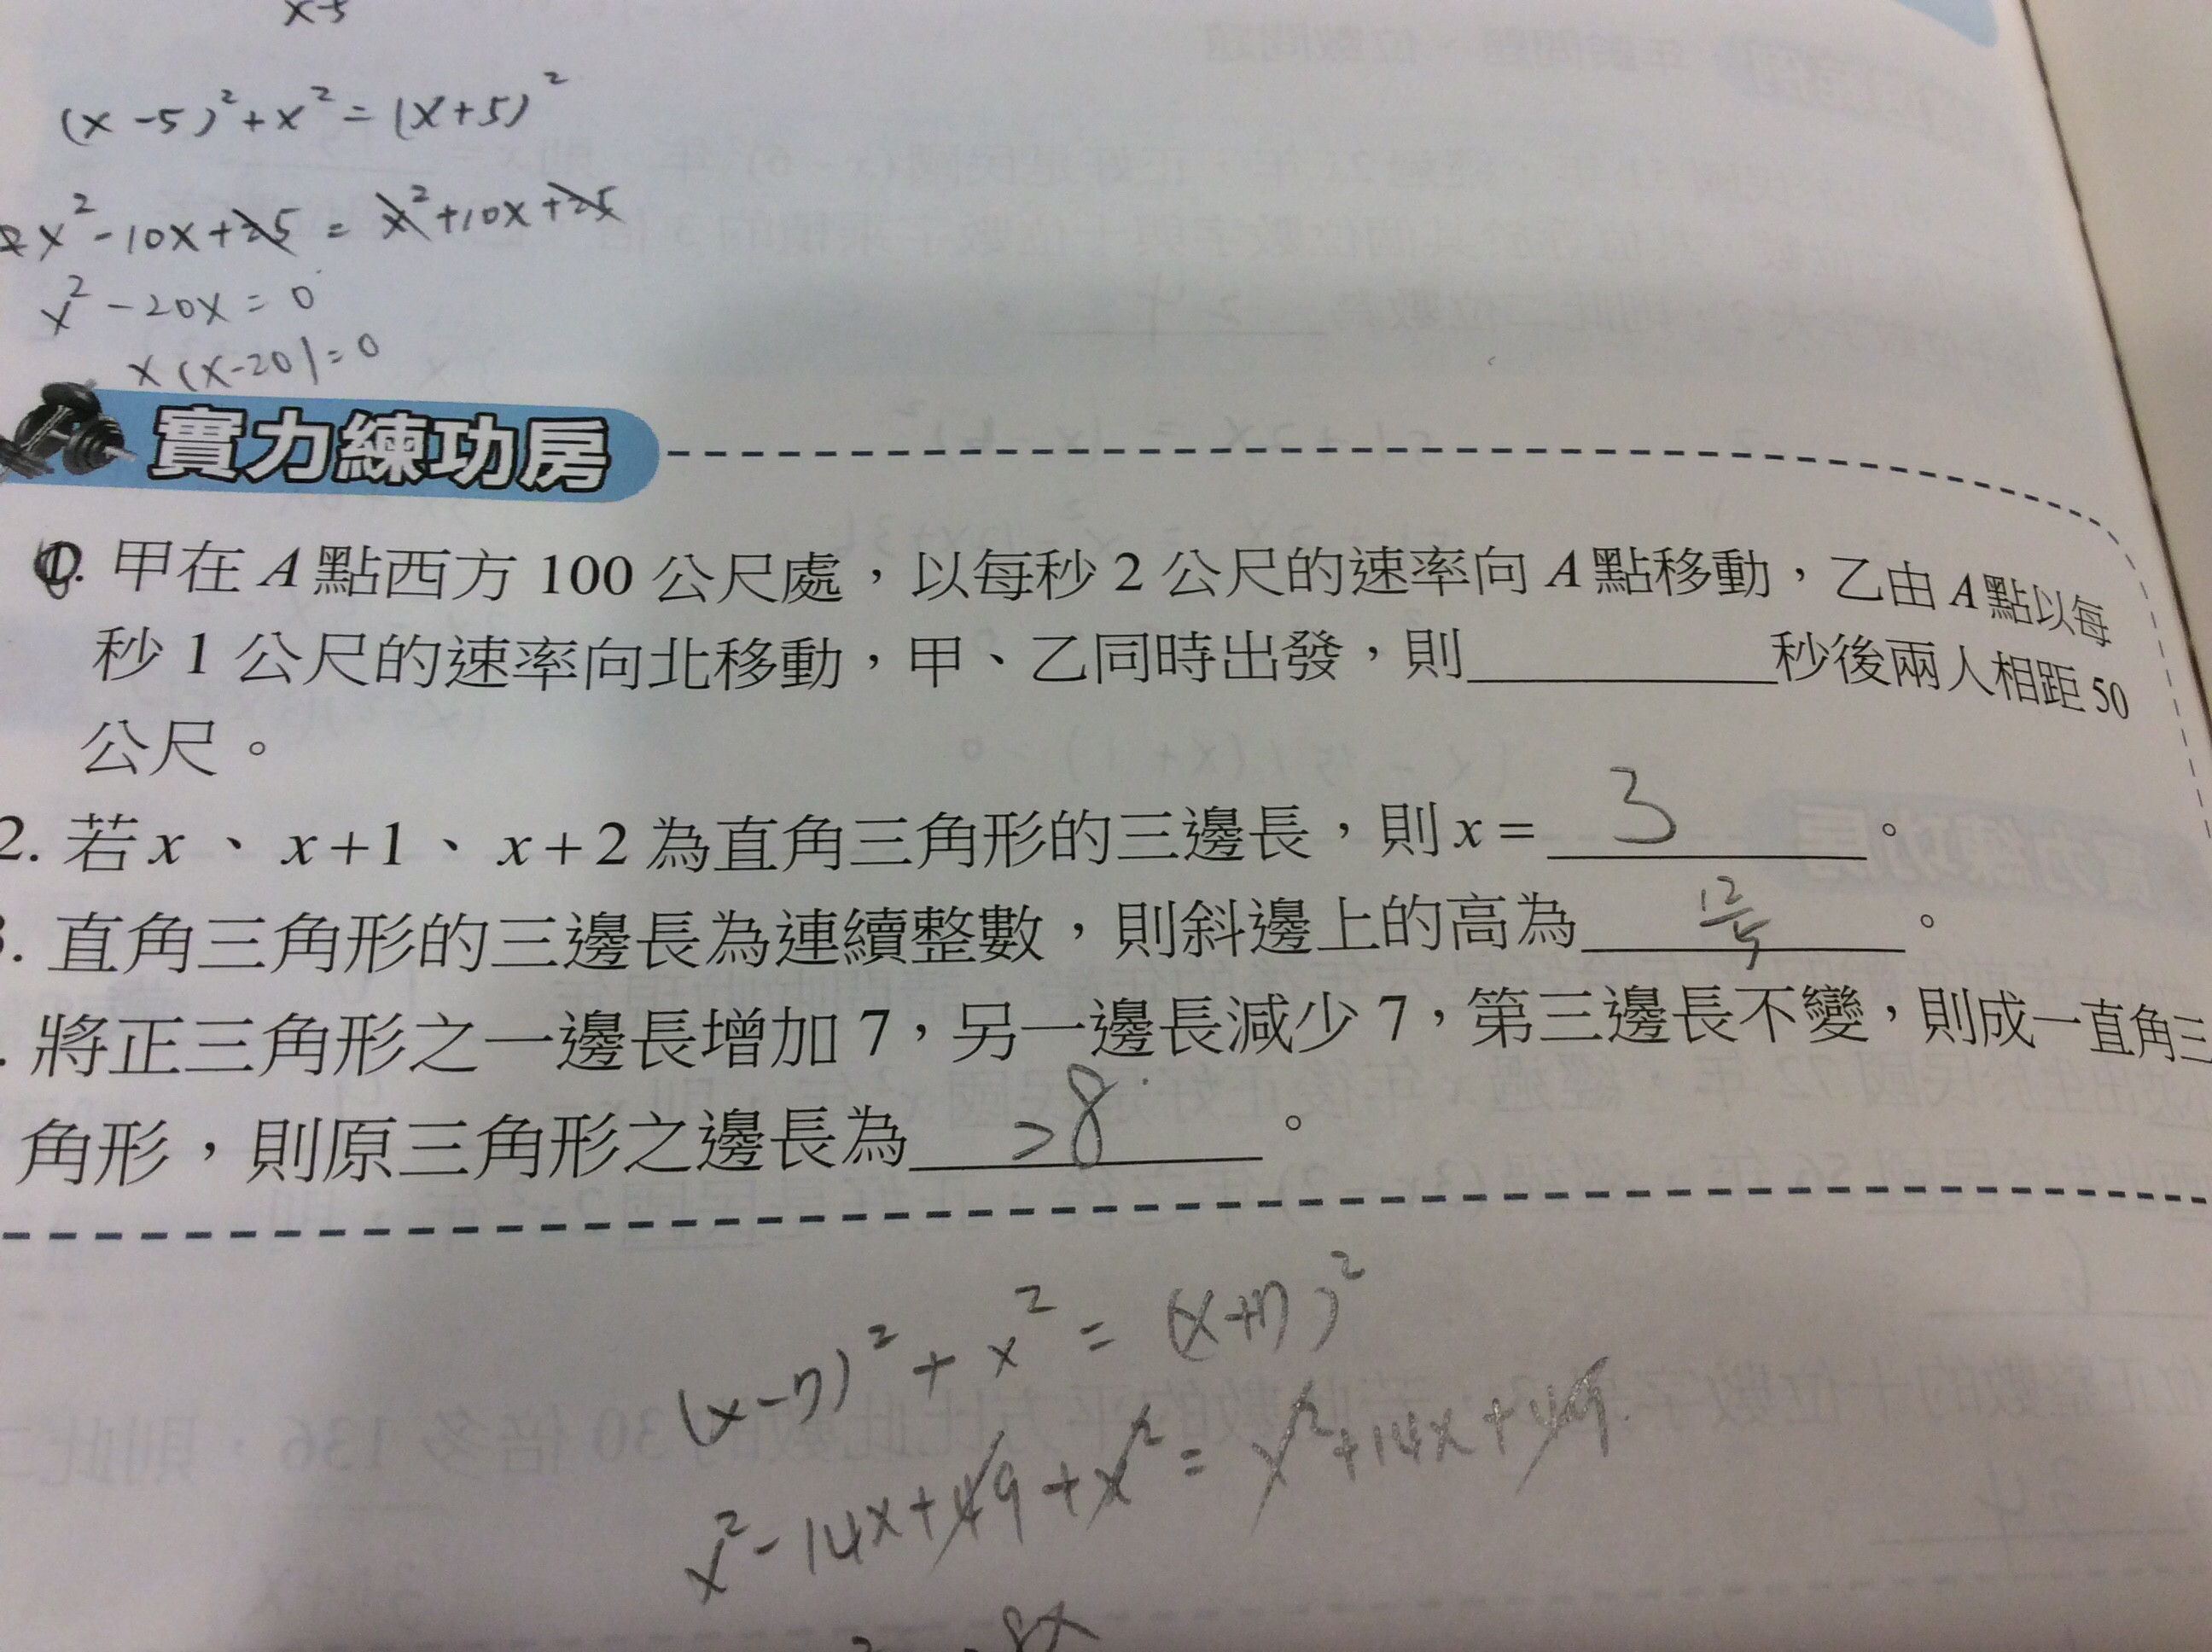 x-5
(x-5)²+x²=(x+5)²
2x²-10x+25=x²+10x+25
x²-20x=0
x(x-20)=0
實力練功房
1. 甲在A點西方100公尺處,以每秒2公尺的速率向A點移動,乙由A點以每
秒1公尺的速率向北移動,甲、乙同時出發,則__________秒後兩人相距50
公尺。
2. 若x、x+1、x+2為直角三角形的三邊長,則x=3。
3. 直角三角形的三邊長為連續整數,則斜邊上的高為12/5。
. 將正三角形之一邊長增加7,另一邊長減少7,第三邊長不變,則成一直角三
角形,則原三角形之邊長為28。
(x-7)²+x²=(x+7)²
x²-14x+49+x²=x²+14x+49